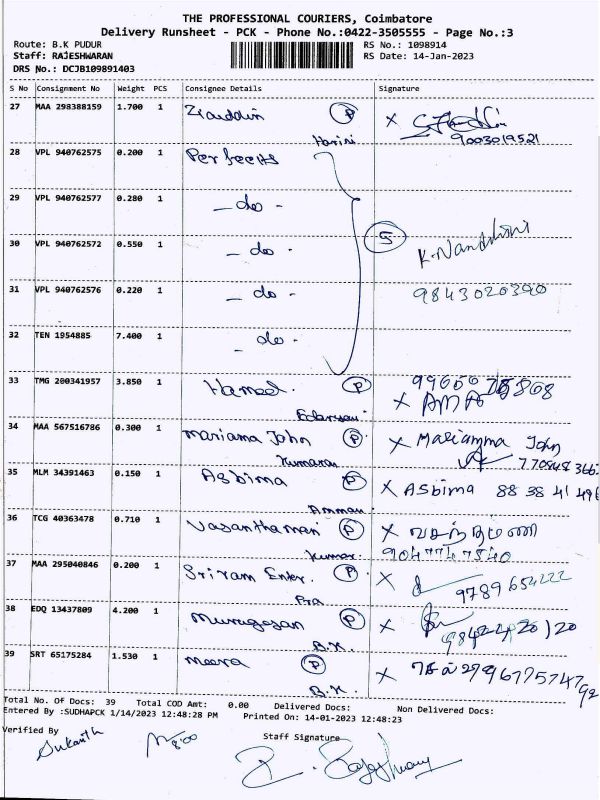 THE PROFESSIONAL COURIERS, Coimbatore
Delivery Runsheet - PCK - Phone No.:0422-3505555 - Page No.:3
Route: B.K PUDUR RS No.: 1098914
Staff: RAJESHWARAN RS Date: 14-Jan-2023
DRS No.: DCJB109891403
S No Consignment No Weight PCS Consignee Details Signature
27 MAA 298388159 1.700 1 Ziauddin P X
Harini 9003019521
28 VPL 940762575 0.200 1 Perfects
29 VPL 940762577 0.280 1 - do -
30 VPL 940762572 0.550 1 - do - 5 K. Nandhini
31 VPL 940762576 0.220 1 - do - 9843020390
32 TEN 1954885 7.400 1 - do -
33 TMG 200341957 3.850 1 Hameed. P X
34 MAA 567516786 0.300 1 Mariama John P X Mariamma John
Kumaran 770848366
35 MLM 34391463 0.150 1 Asbima P X Asbima 88 38 41 496
Amman
36 TCG 40363478 0.710 1 Vasanthamani P X வசந்தமணி
Kumar 9047747840
37 MAA 295040846 0.200 1 Sriram Enter. P X 9789654222
38 EDQ 13437809 4.200 1 Murugesan P X 9842420120
B.K.
39 SRT 65175284 1.530 1 Meera P X
B.K.
Total No. Of Docs: 39 Total COD Amt: 0.00 Delivered Docs: Non Delivered Docs:
Entered By :SUDHAPCK 1/14/2023 12:48:28 PM Printed On: 14-01-2023 12:48:23
Verified By Staff Signature
Sukanth